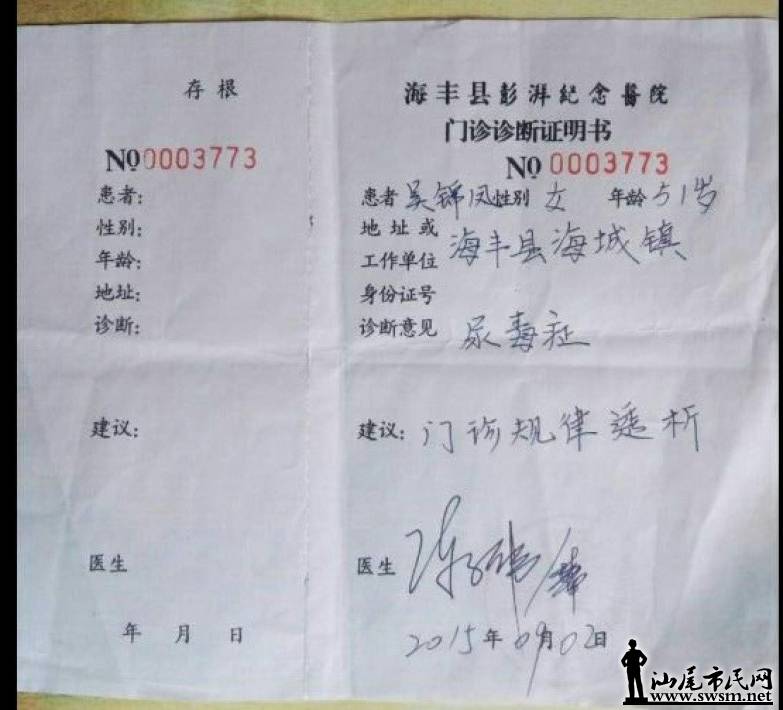 存根
NO 0003773
患者:
性别:
年龄:
地址:
诊断:
建议:
医生
年 月 日
海丰县彭湃纪念醫院
门诊诊断证明书
NO 0003773
患者 吴锦凤 性别 女 年龄 51岁
地址或
工作单位 海丰县海城镇
身份证号
诊断意见 尿毒症
建议: 门诊规律透析
医生
2015年09月02日
汕尾市民网
www.swsm.net